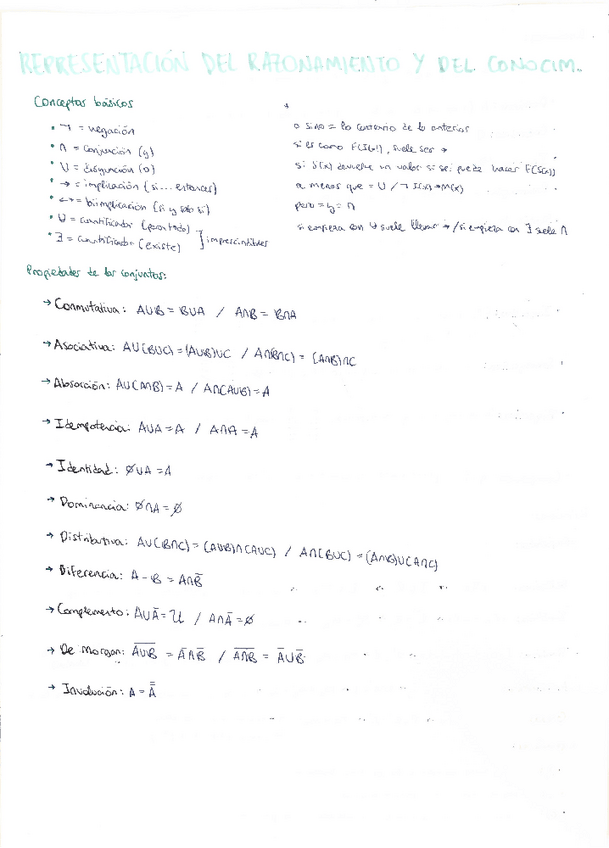 REPRESENTACIÓN DEL RAZONAMIENTO Y DEL CONOCIM.
Conceptos básicos
• ¬ = negación
• ∧ = conjunción (y)
• ∨ = disyunción (o)
• → = implicación (si... entonces)
• ↔ = biimplicación (si y solo si)
• ∀ = cuantificador (para todo)
• ∃ = cuantificador (existe) } imprescindibles
*
o sino = lo contrario de lo anterior
si es como F(S(x)), suele ser →
si S(x) devuelve un valor si se puede hacer F(S(x))
a menos que = ∪ / ¬ → M(x)
pero = y = ∩
si empieza con ∀ suele llevar → / si empieza con ∃ suele ∧
Propiedades de los conjuntos:
→ Conmutativa: A∪B = B∪A / A∩B = B∩A
→ Asociativa: A∪(B∪C) = (A∪B)∪C / A∩(B∩C) = (A∩B)∩C
→ Absorción: A∪(A∩B) = A / A∩(A∪B) = A
→ Idempotencia: A∪A = A / A∩A = A
→ Identidad: ∅∪A = A
→ Dominancia: ∅∩A = ∅
→ Distributiva: A∪(B∩C) = (A∪B)∩(A∪C) / A∩(B∪C) = (A∩B)∪(A∩C)
→ Diferencia: A - B = A∩B̅
→ Complemento: A∪A̅ = U / A∩A̅ = ∅
→ De Morgan: A̅∪̅B̅ = A̅∩B̅ / A̅∩̅B̅ = A̅∪B̅
→ Involución: A = A̿